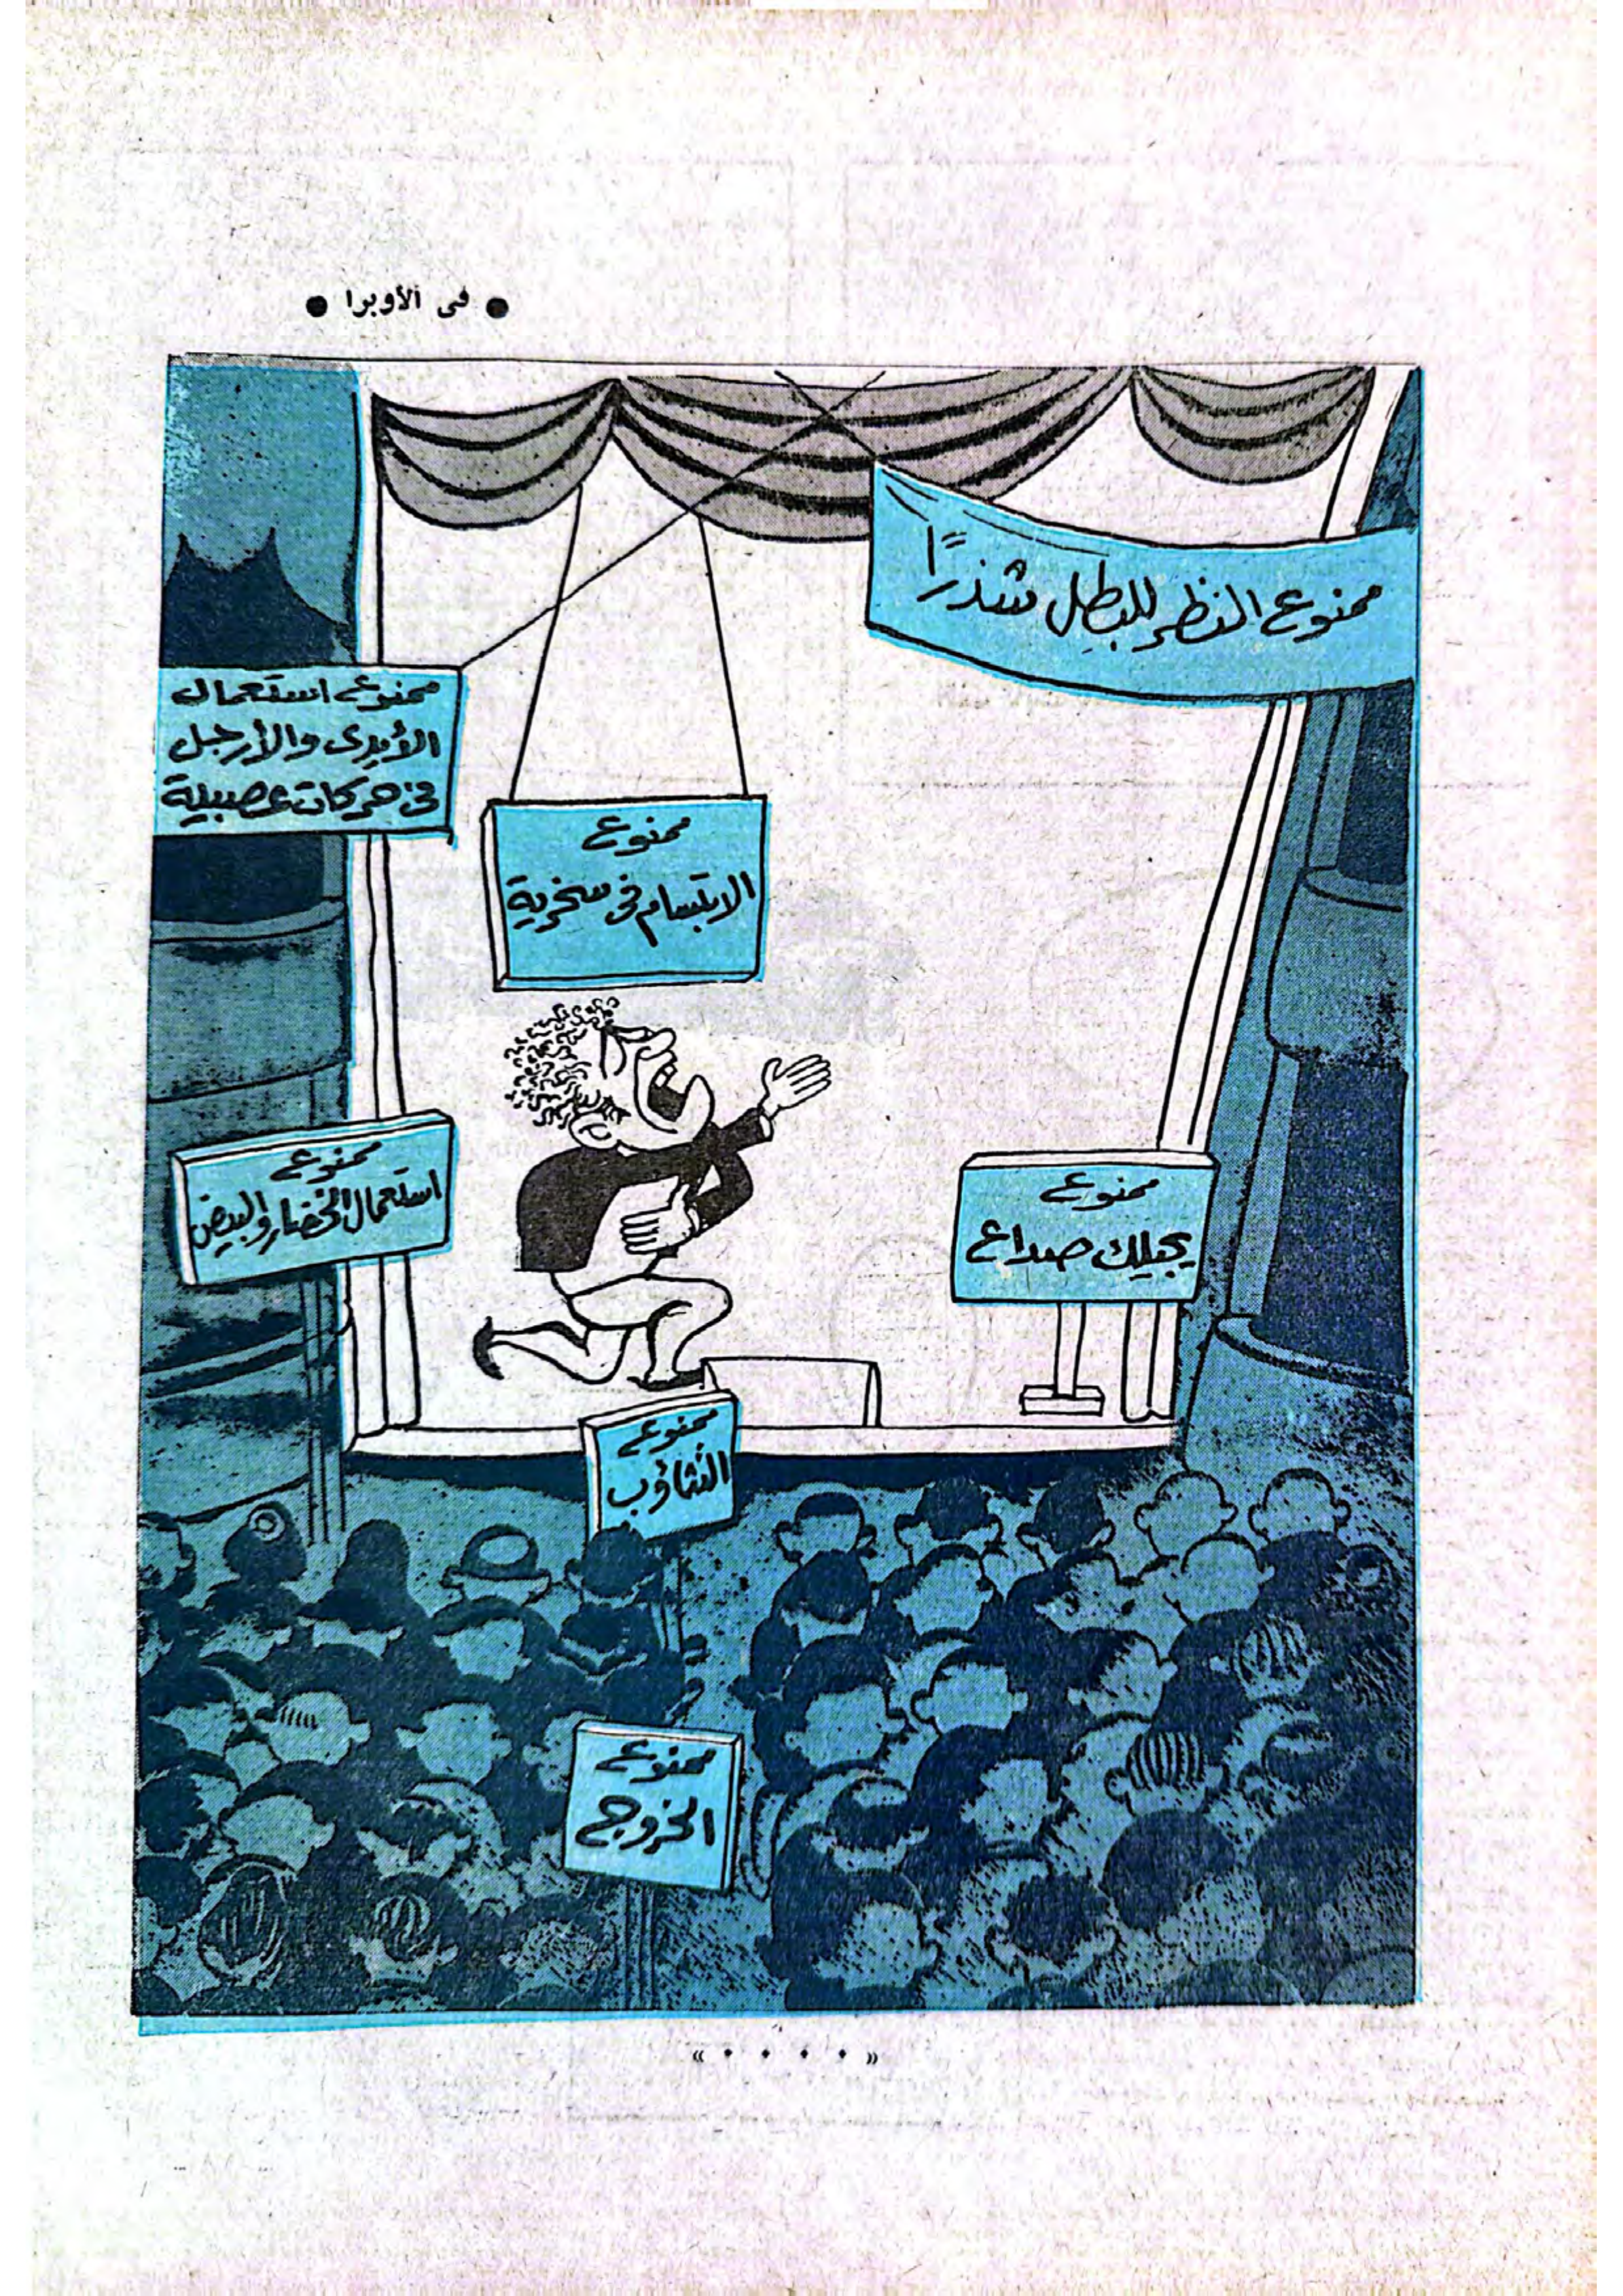 ● فى الأوبرا ●
ممنوع النظر للبطل شذرًا
ممنوع استعمال
الأيدى والأرجل
فى حركات عصبية
ممنوع
الابتسام فى سخرية
ممنوع
استعمال الخضار والبيض
ممنوع
يجيلك صداع
ممنوع
التثاؤب
ممنوع
الخروج
« • • • • »